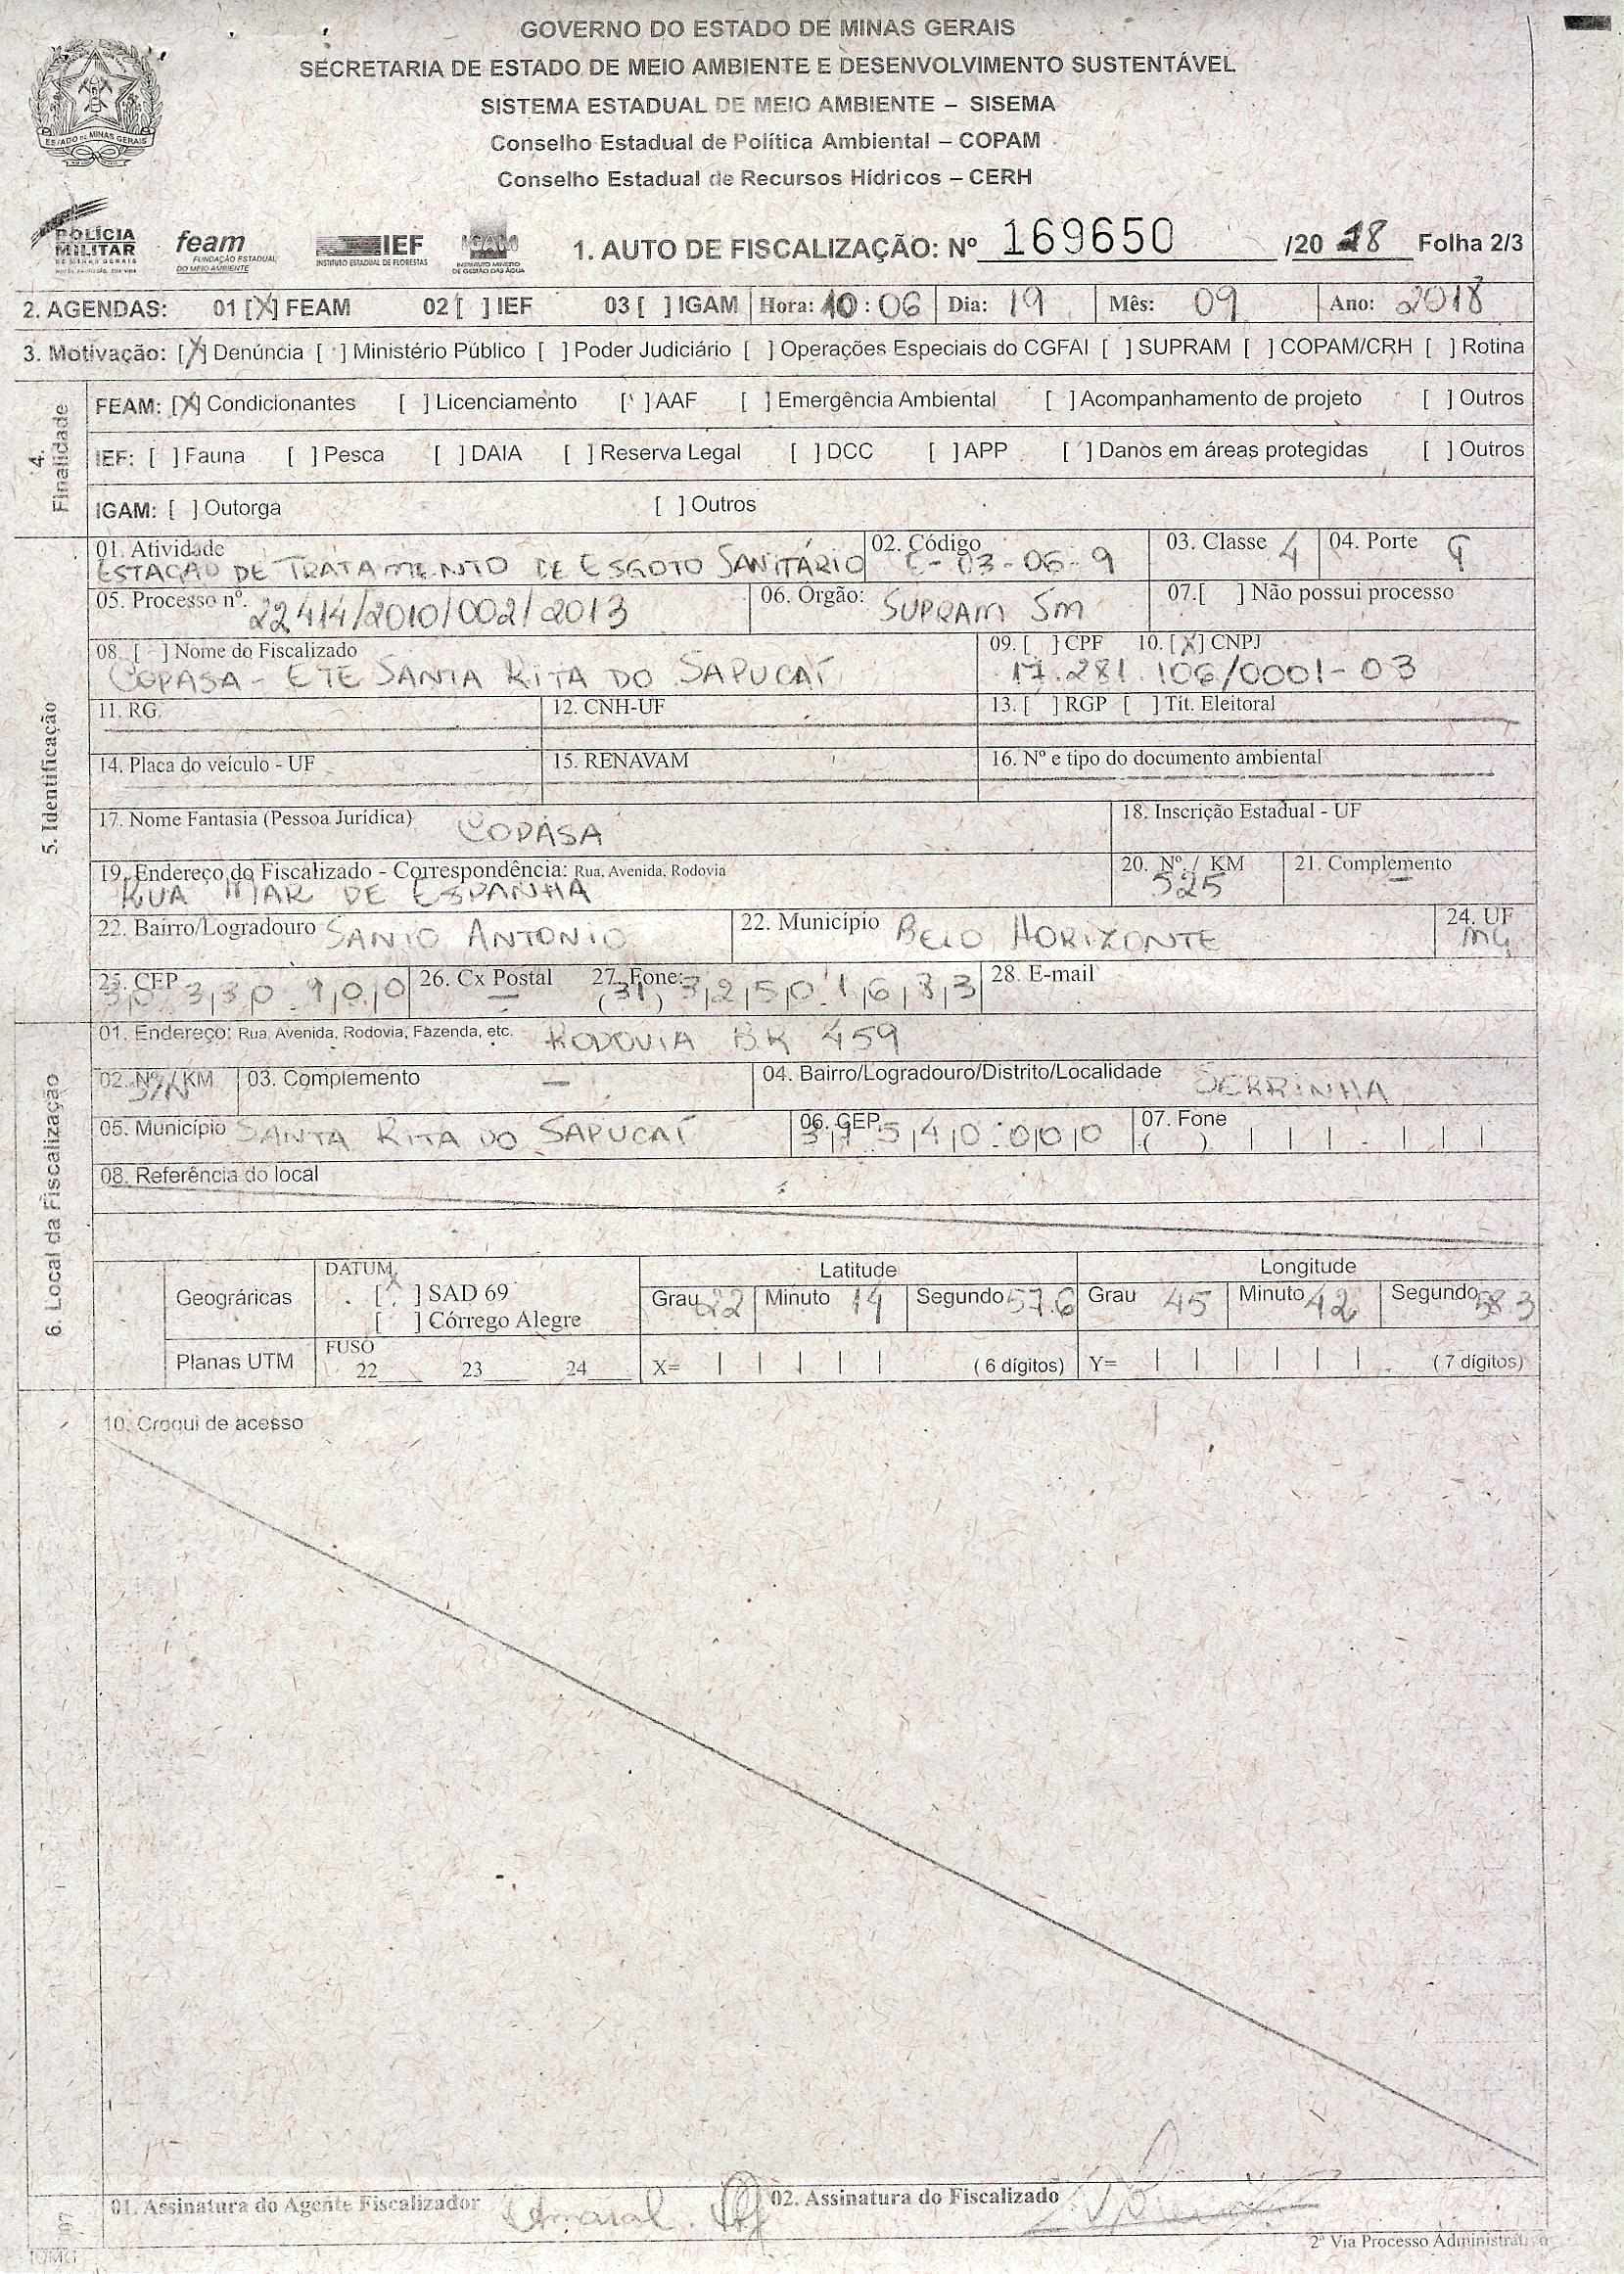 GOVERNO DO ESTADO DE MINAS GERAIS
SECRETARIA DE ESTADO DE MEIO AMBIENTE E DESENVOLVIMENTO SUSTENTÁVEL
SISTEMA ESTADUAL DE MEIO AMBIENTE – SISEMA
Conselho Estadual de Política Ambiental – COPAM
Conselho Estadual de Recursos Hídricos – CERH
ESTADO DE MINAS GERAIS
POLÍCIA MILITAR DE MINAS GERAIS
feam FUNDAÇÃO ESTADUAL DO MEIO AMBIENTE
IEF INSTITUTO ESTADUAL DE FLORESTAS
IGAM INSTITUTO MINEIRO DE GESTÃO DAS ÁGUAS
1. AUTO DE FISCALIZAÇÃO: Nº 169650 /20 18 Folha 2/3
2. AGENDAS: 01 [X] FEAM 02 [ ] IEF 03 [ ] IGAM Hora: 10 : 06 Dia: 19 Mês: 09 Ano: 2018
3. Motivação: [X] Denúncia [ ] Ministério Público [ ] Poder Judiciário [ ] Operações Especiais do CGFAI [ ] SUPRAM [ ] COPAM/CRH [ ] Rotina
4. Finalidade
FEAM: [X] Condicionantes [ ] Licenciamento [ ] AAF [ ] Emergência Ambiental [ ] Acompanhamento de projeto [ ] Outros
IEF: [ ] Fauna [ ] Pesca [ ] DAIA [ ] Reserva Legal [ ] DCC [ ] APP [ ] Danos em áreas protegidas [ ] Outros
IGAM: [ ] Outorga [ ] Outros
5. Identificação
01. Atividade ESTAÇÃO DE TRATAMENTO DE ESGOTO SANITÁRIO 02. Código E-03-06-9 03. Classe 4 04. Porte G
05. Processo nº. 22414/2010/002/2013 06. Órgão: SUPRAM SM 07.[ ] Não possui processo
08. [ ] Nome do Fiscalizado COPASA - ETE SANTA RITA DO SAPUCAÍ 09. [ ] CPF 10. [X] CNPJ 17.281.106/0001-03
11. RG 12. CNH-UF 13. [ ] RGP [ ] Tít. Eleitoral
14. Placa do veículo - UF 15. RENAVAM 16. Nº e tipo do documento ambiental
17. Nome Fantasia (Pessoa Jurídica) COPASA 18. Inscrição Estadual - UF
19. Endereço do Fiscalizado - Correspondência: Rua, Avenida, Rodovia RUA MAR DE ESPANHA 20. Nº. / KM 525 21. Complemento –
22. Bairro/Logradouro SANTO ANTONIO 22. Município BELO HORIZONTE 24. UF MG
25. CEP 30 330 900 26. Cx Postal – 27. Fone: (31) 3250 1633 28. E-mail
6. Local da Fiscalização
01. Endereço: Rua, Avenida, Rodovia, Fazenda, etc. RODOVIA BR 459
02. Nº / KM S/N 03. Complemento – 04. Bairro/Logradouro/Distrito/Localidade SERRINHA
05. Município SANTA RITA DO SAPUCAÍ 06. CEP 37540-000 07. Fone ( )
08. Referência do local
Geográricas DATUM [X] SAD 69 [ ] Córrego Alegre Latitude Grau 22 Minuto 14 Segundo 57.6 Longitude Grau 45 Minuto 42 Segundo 58.3
Planas UTM FUSO 22 23 24 X= (6 dígitos) Y= (7 dígitos)
10. Croqui de acesso
01. Assinatura do Agente Fiscalizador Amaral 02. Assinatura do Fiscalizado
2ª Via Processo Administrativo